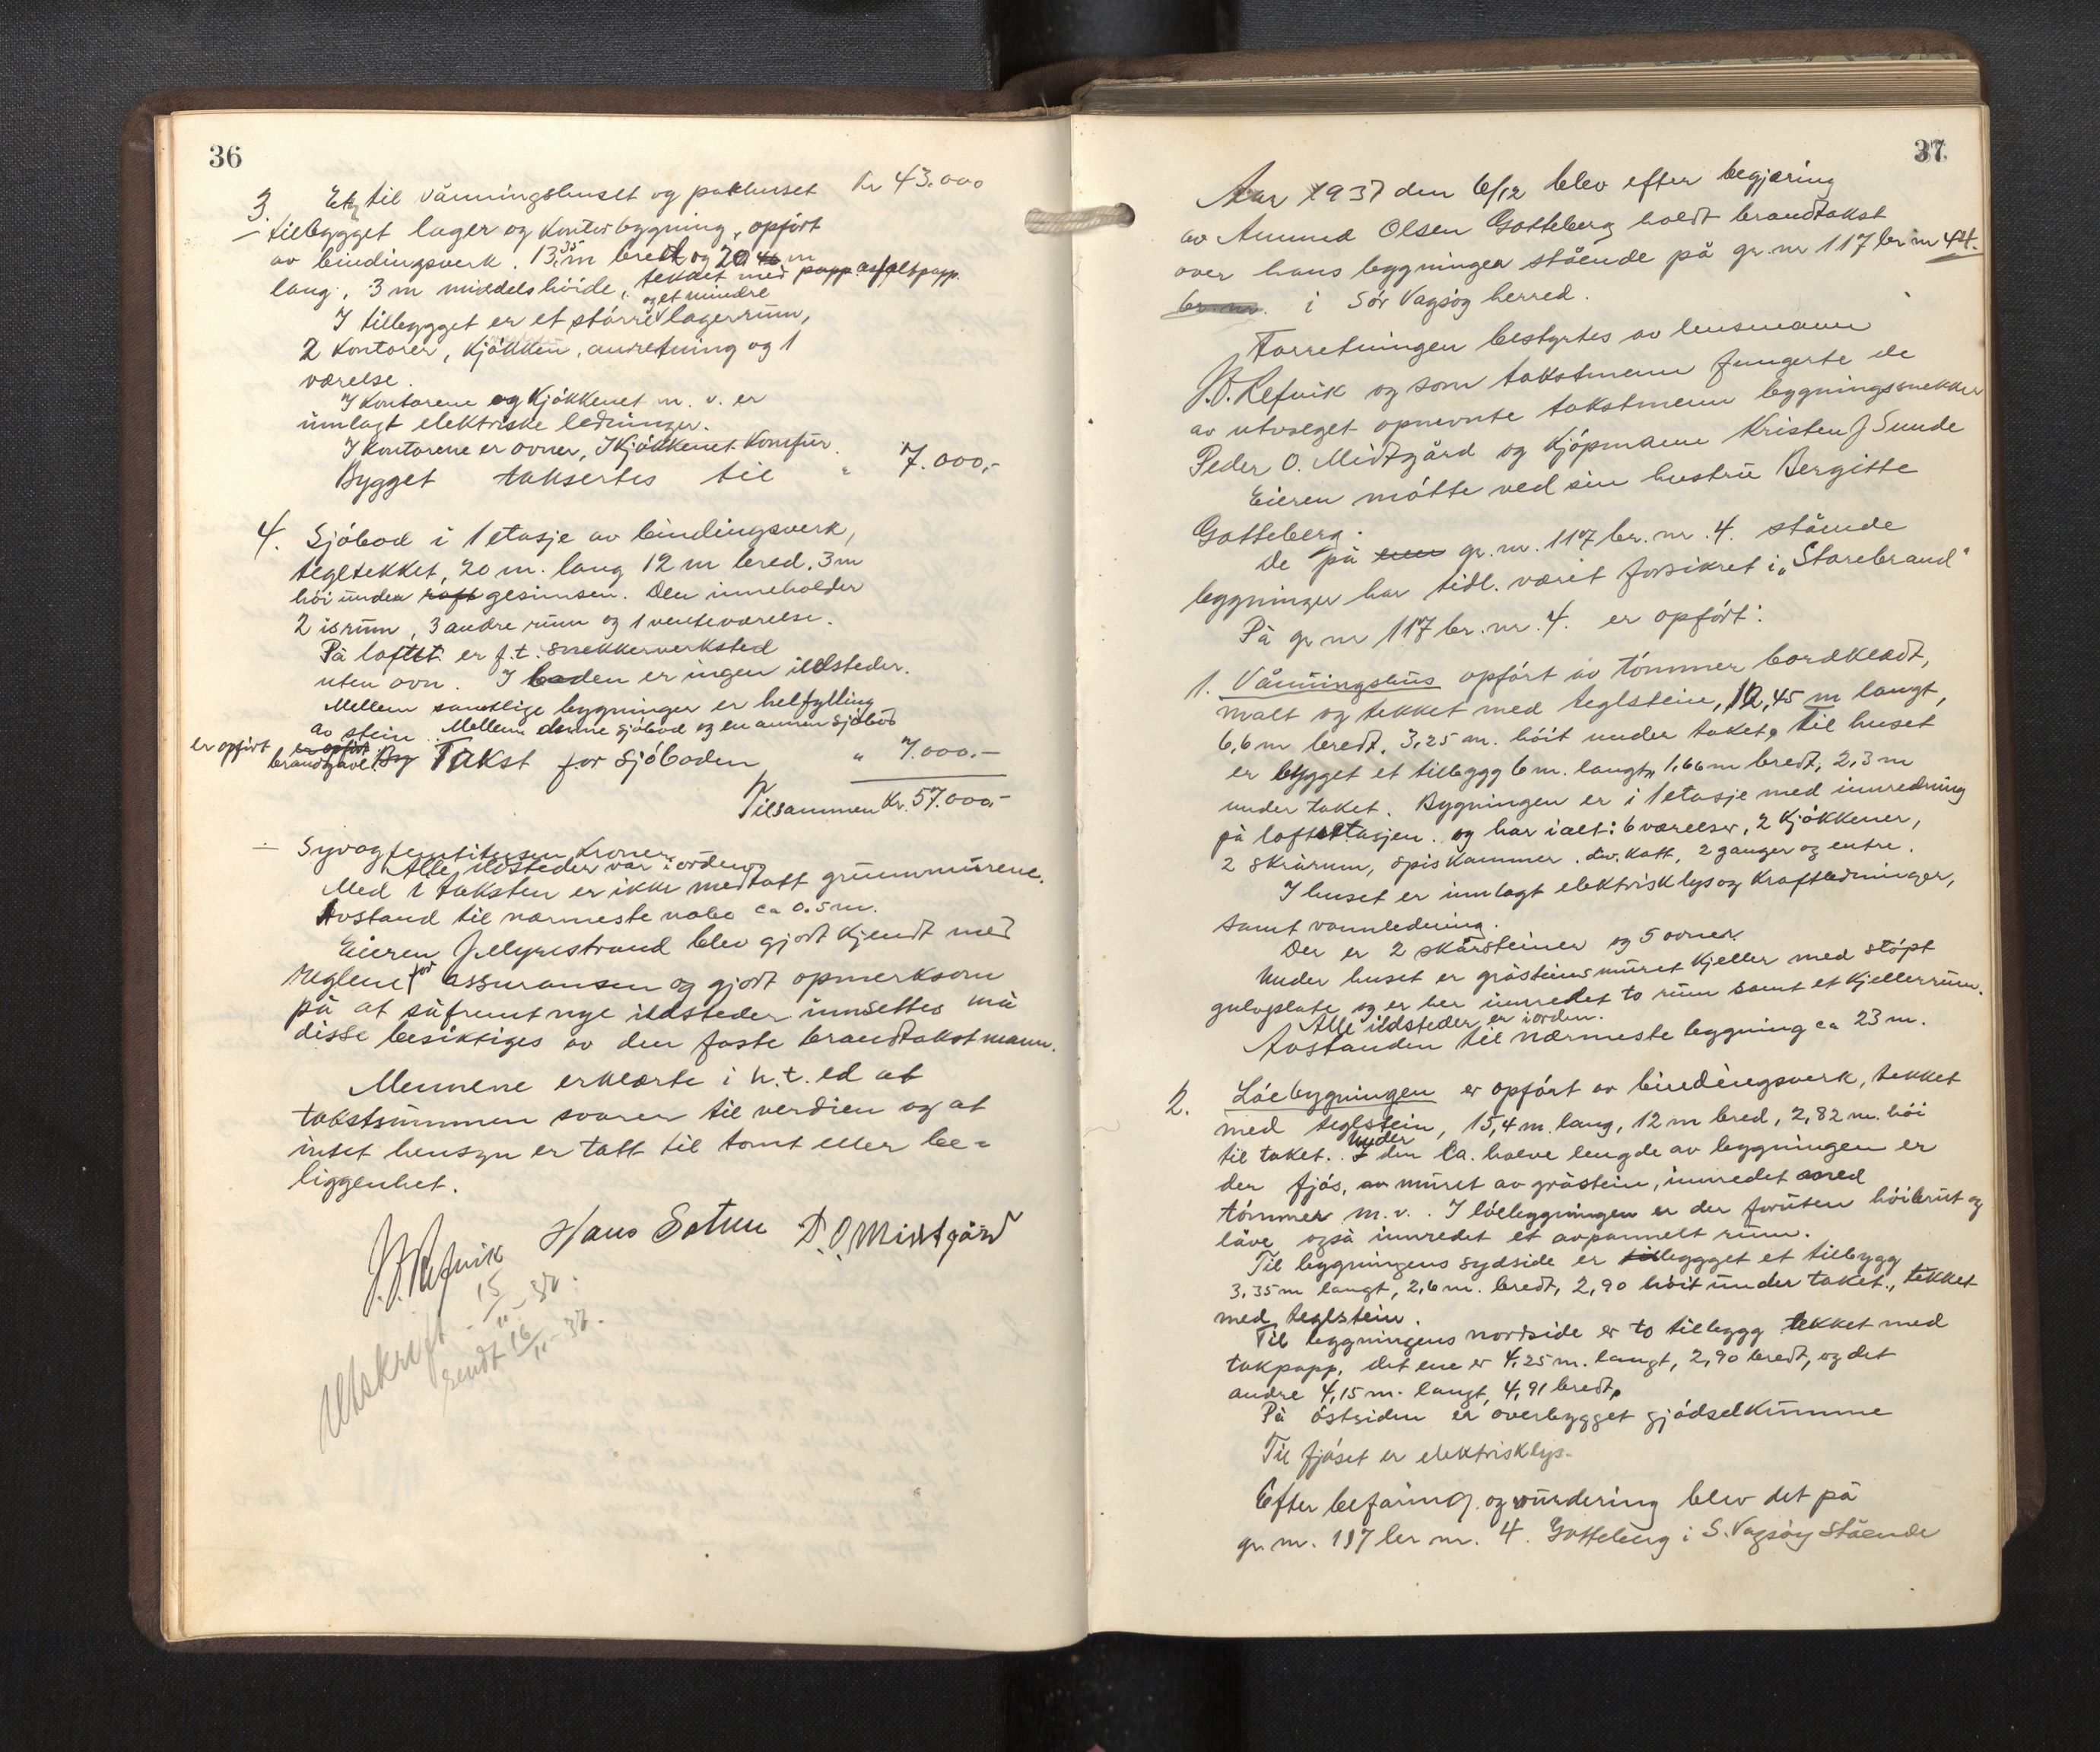 36
Et til våningshuset og pakhuset kr 43.000
3. tilbygget lager og kontorbygning, opført
av bindingsverk. 13,35 m bredt og 20 m
lang, 3 m middelshöide, tekket med papp asfaltpapp.
I tilbygget er et større og et mindre lagerrum,
2 kontorer, kjökken, anretning og 1
værelse.
I kontorene og kjökkenet m. v. er
innlagt elektriske ledninger.
I kontorene er ovner, I kjökkenet komfur.
Bygget taksertes til " 7.000,-
4. Sjöbod i 1 etasje av bindingsverk,
tegltekket, 20 m. lang 12 m bred, 3 m
höi under raft gesimsen. Den inneholder
2 isrum, 3 andre rum og 1 venteværelse.
På loftet er f.t. snekkerverksted
uten ovn. I boden er ingen ildsteder.
Mellem samtlige bygninger er helfylling
av stein. Mellem denne sjöbod og en annen sjöbod
er opfört er opfört
brandgavl. Takst for sjöboden " 7.000.-
Tilsammen kr. 57.000,-
– Syvogfemtitusen kroner.
Alle ildsteder var i orden
Med i taksten er ikke medtatt grunnmurene.
Avstand til nærmeste nabo ca 0.5 m.
Eieren J. Myrestrand blev gjort kjendt med
reglene for assuransen og gjort opmerksom
på at såfremt nye ildsteder innsettes må
disse besiktiges av den faste brandtakstmann.
Mennene erklærte i h.t. ed at
takstsummen svarer til verdien og at
intet hensyn er tatt til tomt eller be-
liggenhet.
J. O. Refvik Hans Sætren P. O. Midtgård
Utskrift 15/11-37.
sendt 16/11-37.
37
Aar 1937 den 6/12 blev efter begjæring
av Amund Olsen Gotteberg holdt brandtakst
over hans bygninger stående på gr.nr 117 br.nr 44.
br. nr. i Sör Vagsöy herred.
Forretningen bestyrtes av lensmann
J. O. Refvik og som takstmenn fungerte de
av utvalget opnevnte takstmenn bygningssnekker
Peder O. Midtgård og kjöpmann Kristen J Sunde
Eieren mötte ved sin hustru Bergitte
Gotteberg.
De på gr. nr. 117 br. nr. 4. stående
bygninger har tidl. været forsikret i „Storebrand"
På gr. nr 117 br. nr. 4. er opfört:
1. Våningshus opfört av tömmer bordkledt,
malt og tekket med teglstein, 12,45 m langt,
6,6 m bredt, 3,25 m. höit under taket. Til huset
er bygget et tilbygg 6 m. langt, 1,66 m bredt, 2,3 m
under taket. Bygningen er i 1 etasje med innredning
på loftsetasjen. og har i alt: 6 værelser, 2 kjökkener,
2 skrårum, spiskammer. div. kott, 2 ganger og entre.
I huset er innlagt elektrisk lys og kraftledninger,
samt vannledning.
Der er 2 skårsteiner og 5 ovner.
Under huset er gråsteinsmuret kjeller med stöpt
gulvplate og er her innredet to rum samt et kjellerrum.
Alle ildsteder er i orden.
Avstanden til nærmeste bygning ca 23 m.
2. Löebygningen er opfört av bindingsverk, tekket
med teglstein, 15,4 m. lang, 12 m bred, 2,82 m. höi
til taket. Under den ca. halve lengde av bygningen er
der fjös, av muret av gråstein, innredet med
tömmer m. v. . I löebygningen er der foruten höibrut og
låve også innredet et avpannelt rum.
Til bygningens sydside er tilbygget et tilbygg
3,35 m langt, 2,6 m. bredt, 2,90 höit under taket., tekket
med teglstein.
Til bygningens nordside er to tilbygg tekket med
takpapp, det ene er 4,25 m. langt, 2,90 bredt, og det
andre 4,15 m. langt, 4,91 bredt.
På östsiden er overbygget gjödselkumme
Til fjöset er elektrisk lys.
Efter befaring og vurdering blev det på
gr. nr. 117 br nr. 4. Gotteberg i S. Vagsöy stående